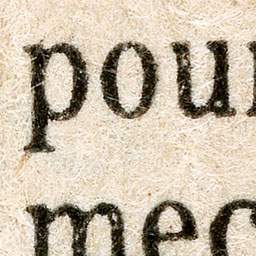 pour
mec